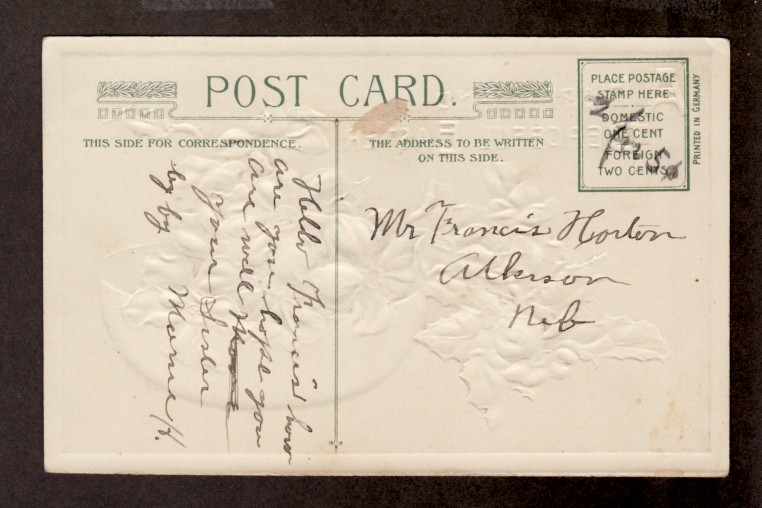 POST CARD.
THIS SIDE FOR CORRESPONDENCE.
THE ADDRESS TO BE WRITTEN
ON THIS SIDE.
PLACE POSTAGE
STAMP HERE
DOMESTIC
ONE CENT
FOREIGN
TWO CENTS
PRINTED IN GERMANY
Hello Francis how
are you hope you
are well
your Sister
by by Mame H.
Mr Francis Horton
Atkinson
Neb